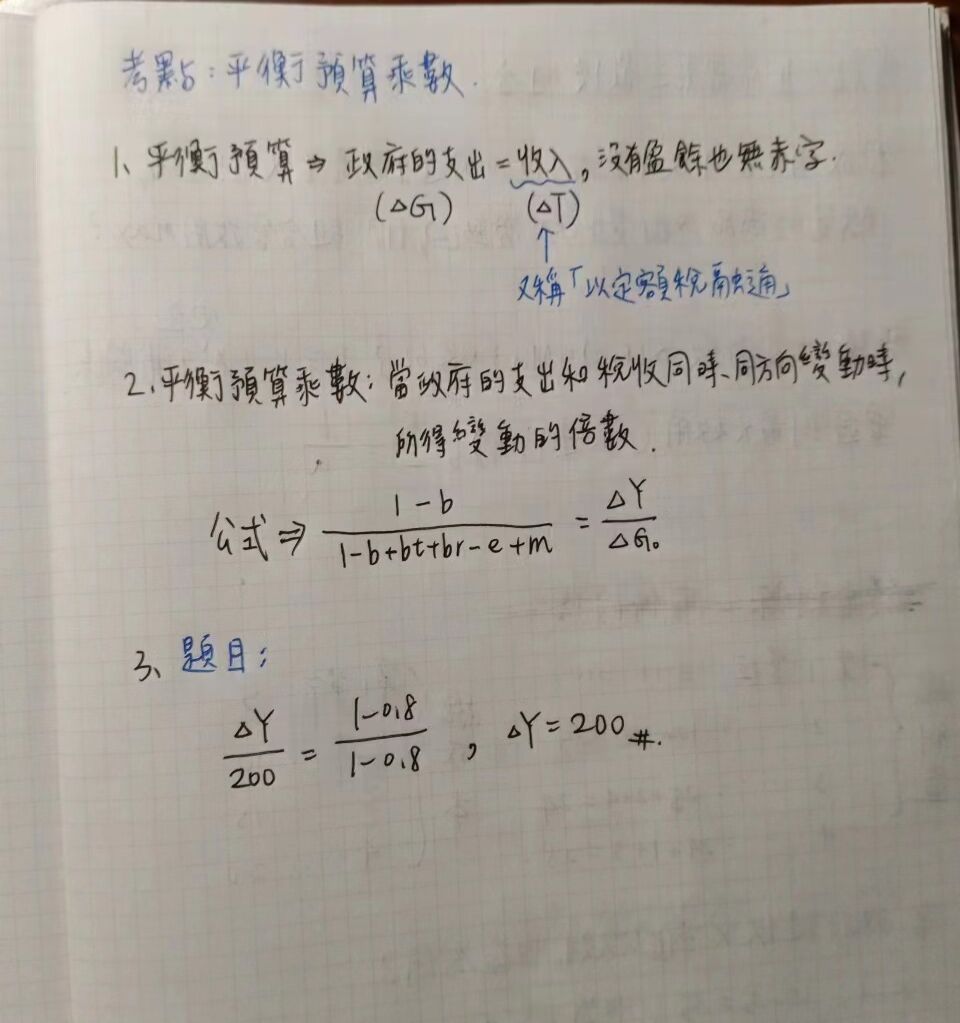 考點：平衡預算乘數.
1、平衡預算⇒政府的支出=收入,沒有盈餘也無赤字.
(△G) (△T)
↑
又稱「以定額稅融通」
2、平衡預算乘數：當政府的支出和稅收同時、同方向變動時,
所得變動的倍數.
公式⇒ (1-b)/(1-b+bt+br-e+m) = △Y/△G₀
3、題目：
△Y/200 = (1-0.8)/(1-0.8) , △Y=200 #.